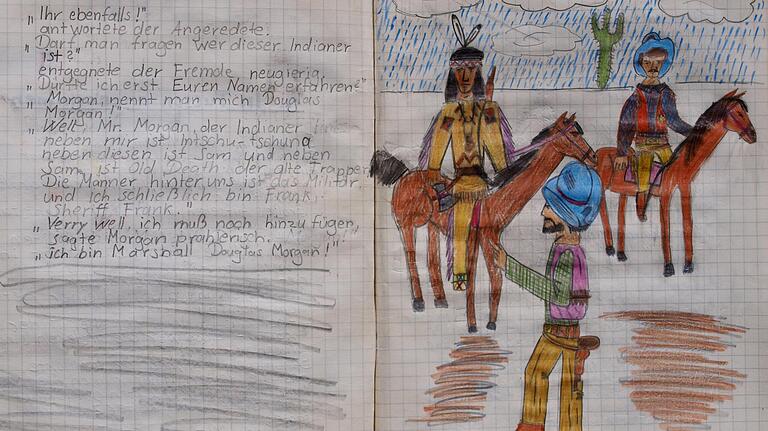 „Ihr ebenfalls!"
antwortete der Angeredete.
„Darf man fragen wer dieser Indianer
ist?"
entgegnete der Fremde neugierig.
„Dürfte ich erst Euren Namen erfahren?"
„Morgan, nennt man mich Douglas
Morgan!"
„Well, Mr. Morgan, der Indianer
neben mir ist Intschu-tschuna
neben diesen ist Sam und neben
Sam, ist Old Death der alte Trapper.
Die Männer hinter uns ist das Militär.
und ich schließlich bin Frank,
Sheriff Frank."
„Verry well, ich muß noch hinzu fügen,
sagte Morgan prahlerisch.
„ich bin Marshall Douglas Morgan!"